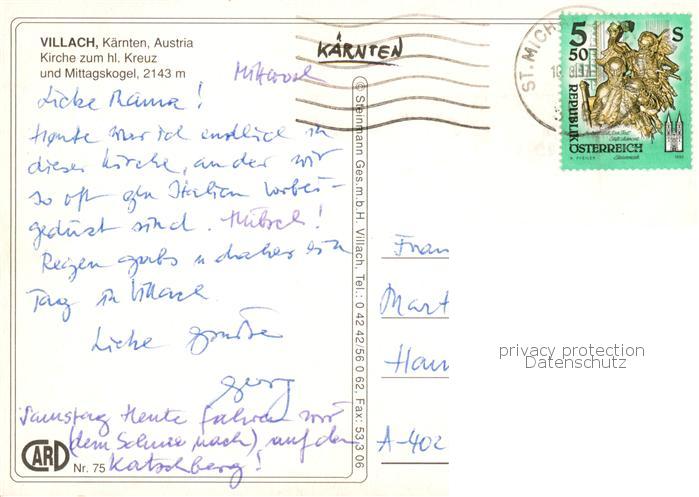 VILLACH, Kärnten, Austria
Kirche zum hl. Kreuz
und Mittagskogel, 2143 m
KÄRNTEN
Mittwoch
Liebe Mama!
Heute war ich endlich in
dieser Kirche, an der wir
so oft gen Italien vorbei-
gedüst sind. Hübsch!
Regen gabs u daher ein
Tag in Villach.
Liebe Grüße
Georg
Samstag Heute fahren wir
(dem Schnee nach) auf den
Katschberg!
CARD
Nr. 75
© Steinmann Ges.m.b.H. Villach, Tel.: 0 42 42/56 0 62, Fax: 53 3 06
ST. MICH
5 50 S
REPUBLIK
ÖSTERREICH
Frau
Mart
Hau
A-402
privacy protection
Datenschutz